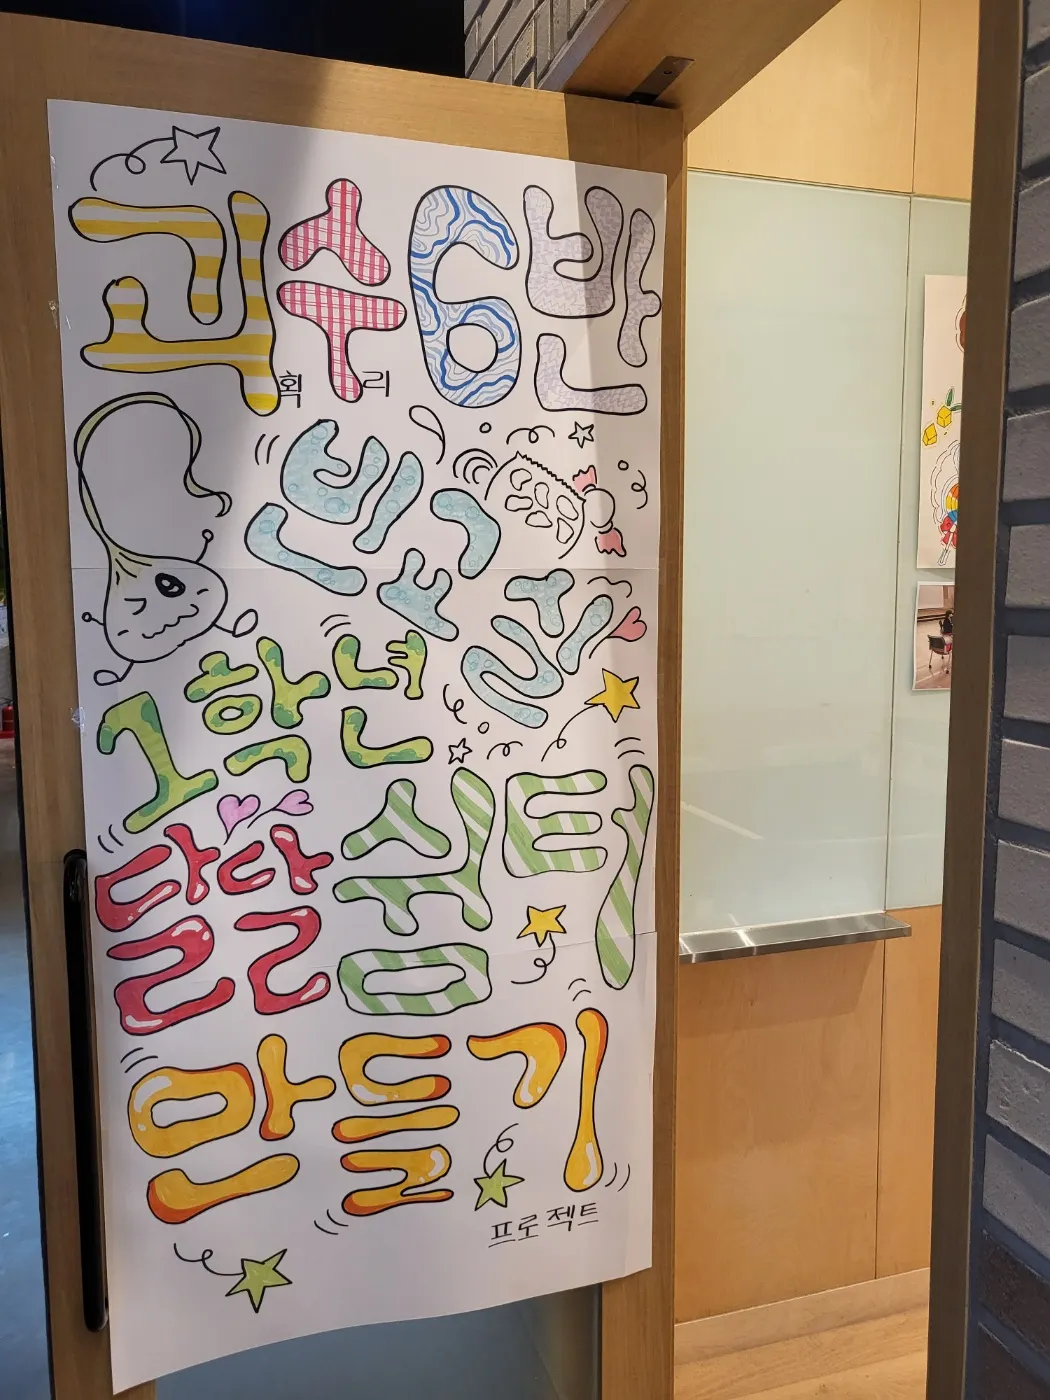 괴수6반
획 리
빈교실
1학년
달달 쉼터
만들기
프로젝트